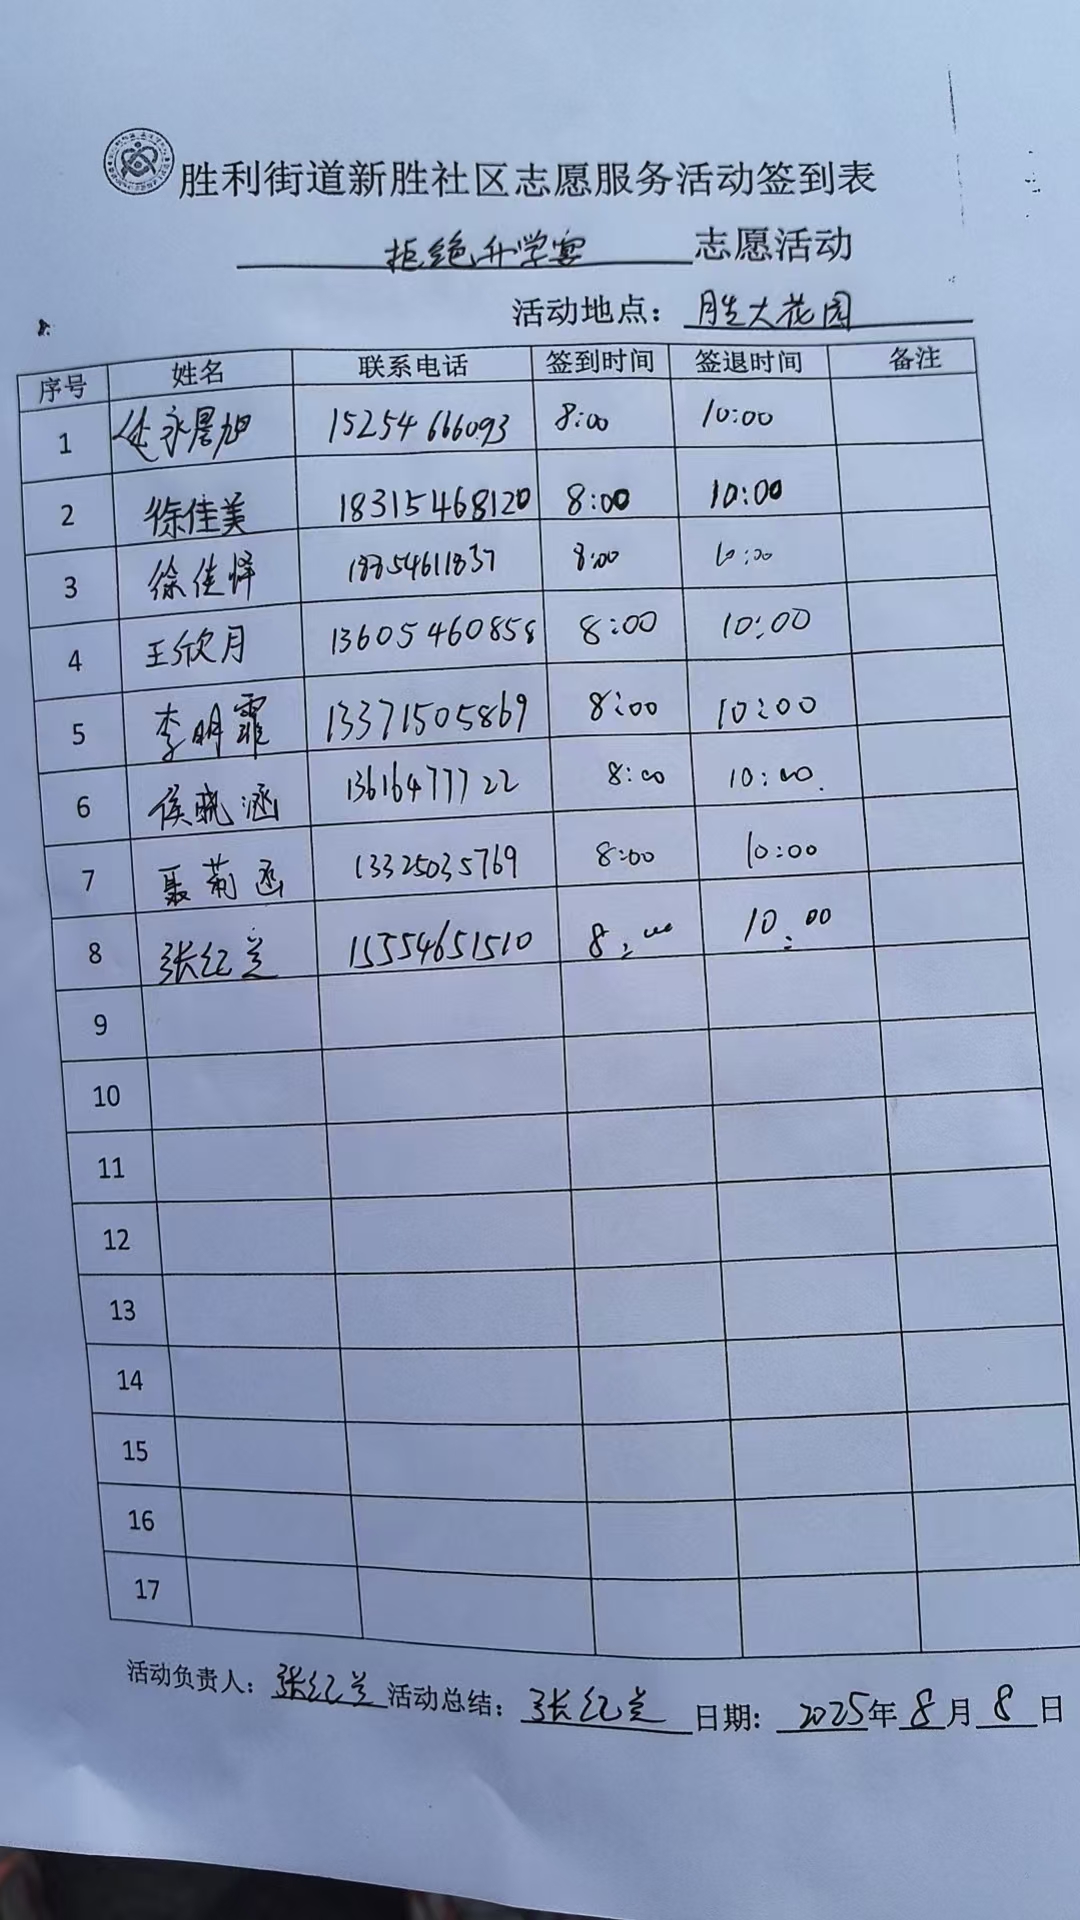 胜利街道新胜社区志愿服务活动签到表
拒绝升学宴 志愿活动
活动地点：胜大花园
序号 姓名 联系电话 签到时间 签退时间 备注
1 永晨旭 15254666093 8:00 10:00
2 徐佳美 18315468120 8:00 10:00
3 徐佳怿 18854611837 8:00 10:00
4 王欣月 13605460858 8:00 10:00
5 李明霏 13371505869 8:00 10:00
6 侯晓涵 13616477722 8:00 10:00
7 聂菊函 13325035769 8:00 10:00
8 张红兰 15554651510 8:00 10:00
9
10
11
12
13
14
15
16
17
活动负责人：张红兰 活动总结：张红兰 日期：2025年8月8日